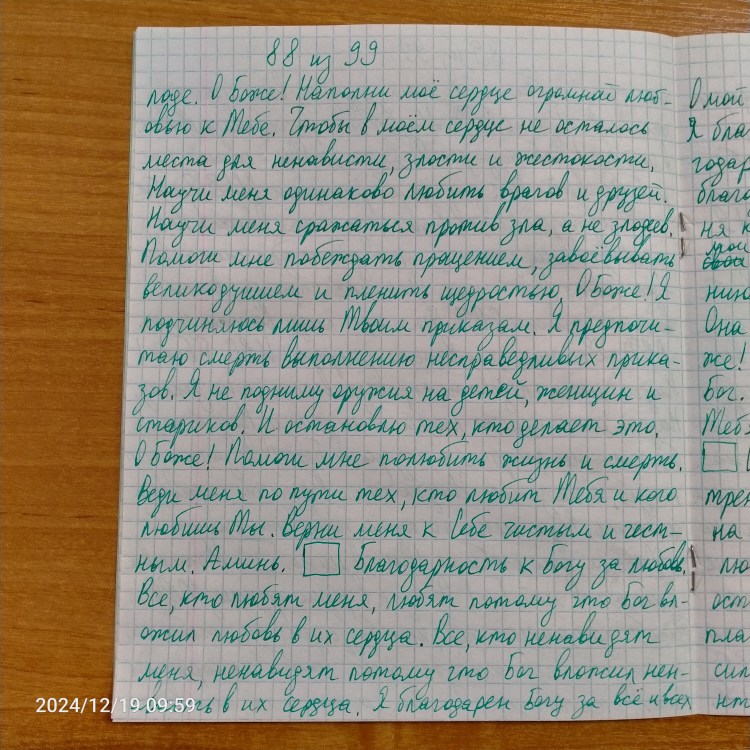 88 из 99
поде. О Боже! Наполни моё сердце огромной люб-
овью к Тебе. Чтобы в моём сердце не осталось
места для ненависти, злости и жестокости.
Научи меня одинаково любить врагов и друзей.
Научи меня сражаться против зла, а не злодеев.
Помоги мне побеждать прощением, завоёвывать
великодушием и пленить щедростью. О Боже! Я
подчиняюсь лишь Твоим приказам. Я предпочи-
таю смерть выполнению несправедливых прика-
зов. Я не подниму оружия на детей, женщин и
стариков. И остановлю тех, кто делает это.
О Боже! Помоги мне полюбить жизнь и смерть.
Веди меня по пути тех, кто любит Тебя и кого
любишь Ты. Верни меня к Себе чистым и чест-
ным. Аминь. Благодарность к Богу за любовь.
Все, кто любят меня, любят потому что Бог вл-
ожил любовь в их сердца. Все, кто ненавидят
меня, ненавидят потому что Бог вложил нен-
ависть в их сердца. Я благодарен Богу за всё и всех
О мой
Я бла
годар
благо
ня к
мои
нию
Она
же!
Бог.
Тебя
трен
на
лю
ост
пла
сил
нт
2024/12/19 09:59